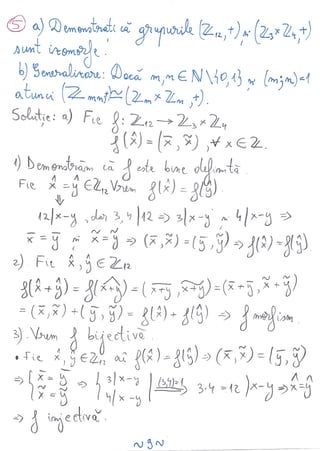 ⑤ a) Demonstrați că grupurile (ℤ₁₂,+) și (ℤ₃×ℤ₄,+)
sunt izomorfe.
b) Generalizare: Dacă m,n∈ℕ\{0,1} și (m;n)=1
atunci (ℤₘₙ,+)≃(ℤₘ×ℤₙ,+).
Soluție: a) Fie f: ℤ₁₂ → ℤ₃×ℤ₄
f(x̂) = (x̄, x̃), ∀x∈ℤ.
1) Demonstrăm că f este bine definită.
Fie x̂ = ŷ ∈ℤ₁₂ Vrem f(x̂) = f(ŷ)
⇓
12|x-y, dar 3,4|12 ⇒ 3|x-y și 4|x-y ⇒
x̄ = ȳ și x̃ = ỹ ⇒ (x̄, x̃) = (ȳ, ỹ) ⇒ f(x̂) = f(ŷ)
2) Fie x̂, ŷ ∈ ℤ₁₂
f(x̂ + ŷ) = f(x+y^) = (x+y‾, x+y~) = (x̄+ȳ, x̃+ỹ)
= (x̄, x̃) + (ȳ, ỹ) = f(x̂) + f(ŷ) ⇒ f morfism.
3) Vrem f bijectivă.
• Fie x̂, ŷ ∈ℤ₁₂ aî f(x̂) = f(ŷ) ⇒ (x̄, x̃) = (ȳ, ỹ)
⇒ { x̄ = ȳ x̃ = ỹ ⇒ { 3|x-y 4|x-y (3,4)=1 ⇒ 3·4=12|x-y ⇒ x̂=ŷ
⇒ f injectivă.
~9~